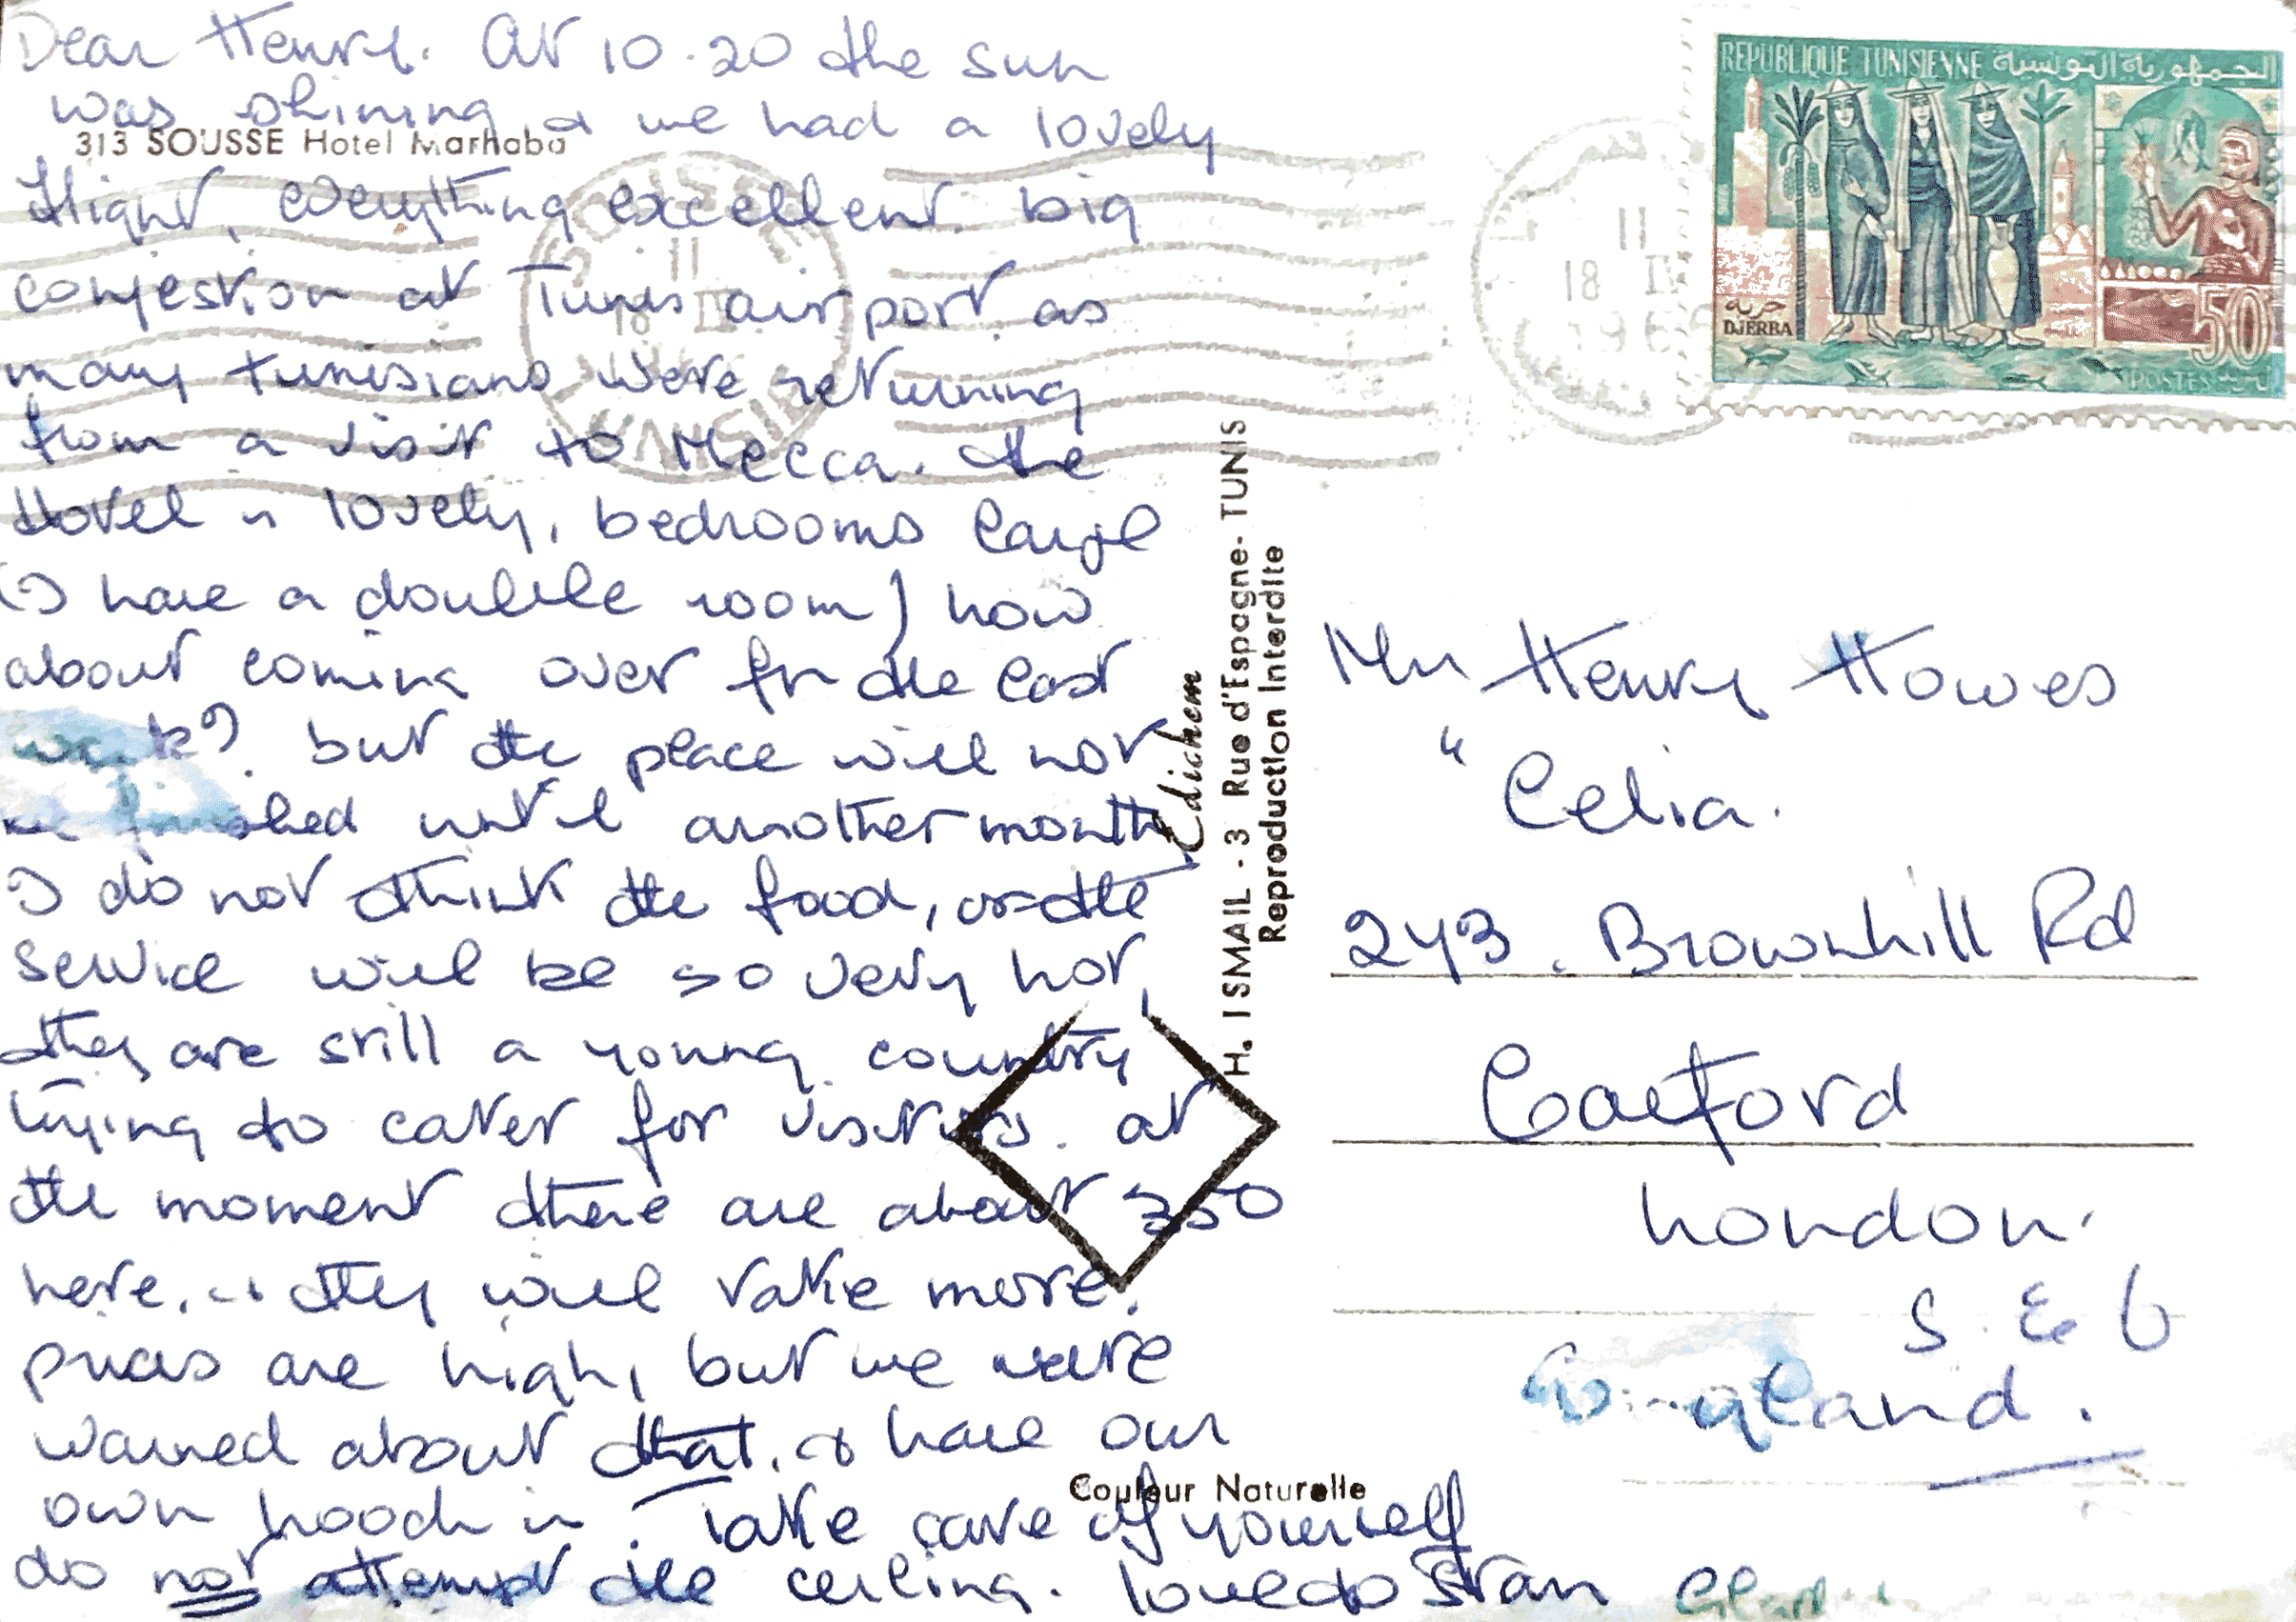 Dear Henry. At 10.20 the sun
was shining & we had a lovely
313 SOUSSE Hotel Marhaba
flight, everything excellent. big
conjestion at Tunis airport as
many tunisians were returning
from a visit to Mecca. the
Hotel is lovely, bedrooms large
(I have a double room) how
about coming over for the last
week? but the place will not
be finished until another month
I do not think the food, or the
service will be so very hot,
they are still a young country
trying to cater for visitors. at
the moment there are about 350
here, & they will take more.
prices are high, but we were
warned about that, & have our
own hooch in. Take care of yourself
do not attempt the ceiling. love to Stan
Edichem
H. ISMAIL - 3 Rue d'Espagne- TUNIS
Reproduction Interdite
Couleur Naturelle
REPUBLIQUE TUNISIENNE الجمهورية التونسية
جربة
DJERBA
50
POSTES
SOUSSE
II
18 II
196
Mr Henry Howes
" Celia.
243. Brownhill Rd
Catford
London.
S.E 6
England.